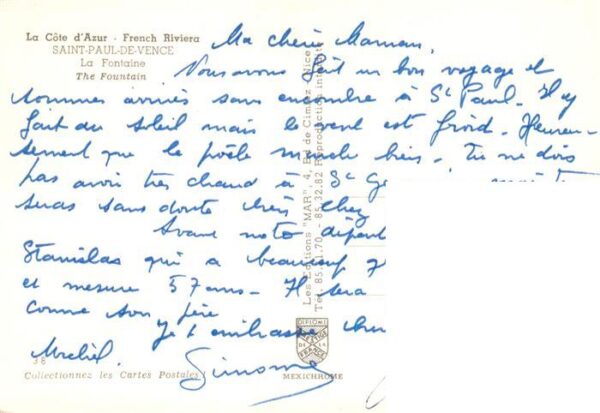 La Côte d'Azur - French Riviera
SAINT-PAUL-DE-VENCE
La Fontaine
The Fountain
Ma chère Maman,
Nous avons fait un bon voyage et
sommes arrivés sans encombre à St Paul. Il y
fait du soleil mais le vent est froid. Heureu-
sement que le poêle marche bien. Tu ne dois
pas avoir très chaud à St Ge
seras sans doute bien chez
Avant notre départ
Stanislas qui a beaucoup
et mesure 57 ans. Il sera
comme son père
Je t'embrasse
Michel. Simone
38
Collectionnez les Cartes Postales!
Les Editions "MAR", 4, Bd de Cimiez, Nice
Tél. 85.01.70 - 85.32.82 Reproduction interdite
DIPLOME
PRESTIGE
DE LA
FRANCE
MEXICHROME